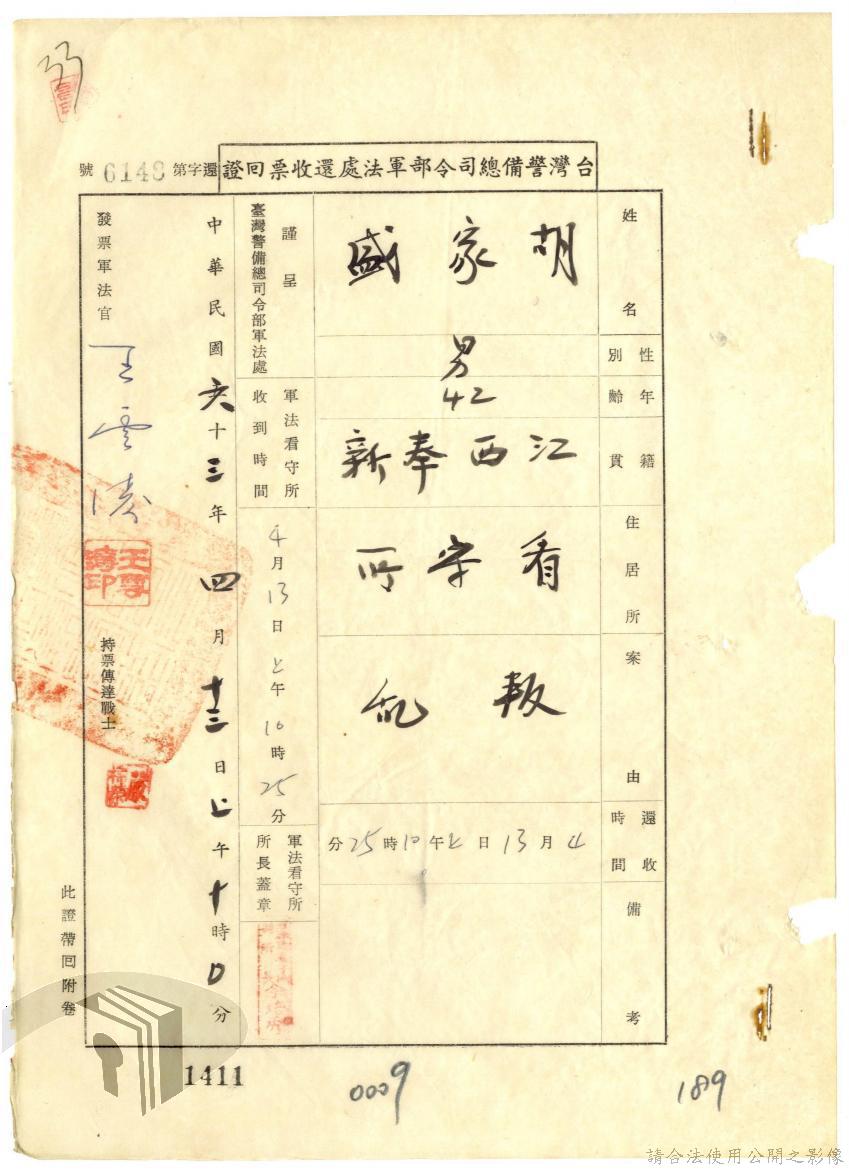 台灣警備總司令部軍法處還收票回證
還字第6148號
姓名 胡家盛
性別 男
年齡 42
籍貫 江西奉新
住居所 看守所
案由 叛亂
還收時間 4月13日上午10時25分
備考
謹呈
臺灣警備總司令部軍法處
軍法看守所收到時間 4月13日上午10時25分
軍法看守所所長蓋章
中華民國六十三年四月十三日上午十時0分
發票軍法官 王雲濤
王雲濤印
持票傳達戰士
此證帶回附卷
1411
0009
189
請合法使用公開之影像